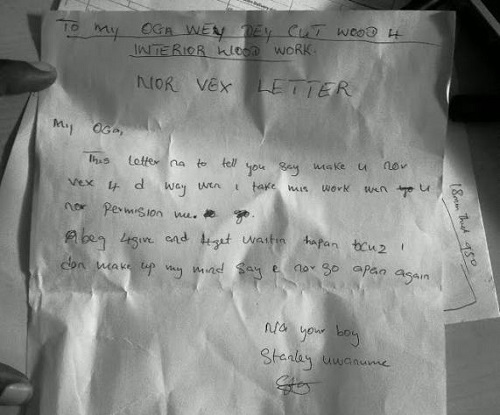 TO MY OGA WEY DEY CUT WOOD 4
INTERIOR WOOD WORK.
NOR VEX LETTER
My OGA,
This letter na to tell you say make u nor
vex 4 d way wen i take mis work wen u
nor permision me.
Abeg 4give and 4get waitin hapan bcuz i
don make up my mind say e nor go apan again
N/a your boy
Stanley uwanume
18mm that 950